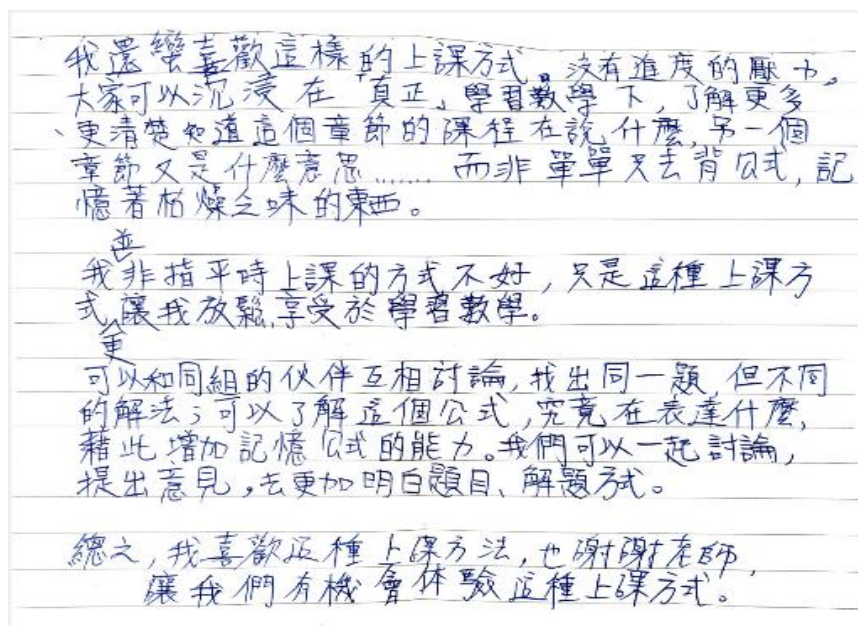 我還蠻喜歡這樣的上課方式。沒有進度的壓力。
大家可以沉浸在「真正」學習數學下,了解更多
、更清楚知道這個章節的課程在說什麼,另一個
章節又是什麼意思......而非單單只去背公式,記
憶著枯燥乏味的東西。
並
我非指平時上課的方式不好,只是這種上課方
式讓我放鬆,享受於學習數學。
更
可以和同組的伙伴互相討論,找出同一題,但不同
的解法;可以了解這個公式,究竟在表達什麼,
藉此增加記憶公式的能力。我們可以一起討論,
提出意見,去更加明白題目、解題方式。
總之,我喜歡這種上課方法,也謝謝老師,
讓我們有機會体驗這種上課方式。